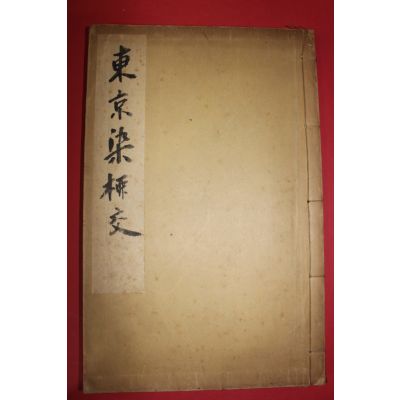 東京染交